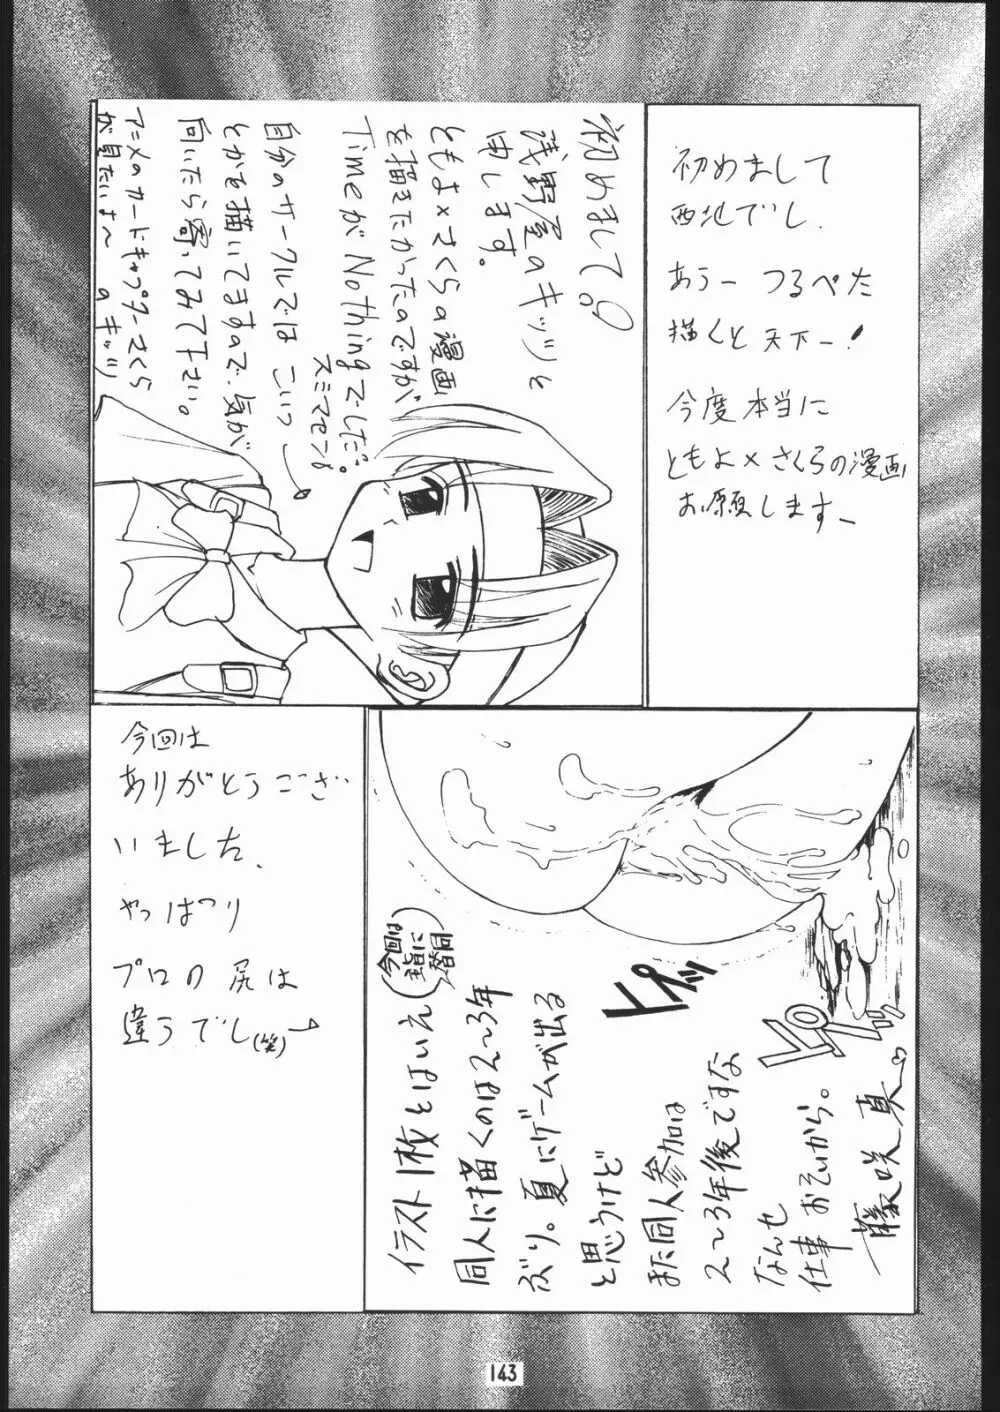 初めまして
西地でし.
あうー つるぺた
描くと天下一!
今度本当に
ともよ×さくらの漫画
お願します-
初めまして。
浅野屋のキッツと
申します。
ともよ×さくらの漫画
を描きたかったのですが
TimeがNothingでした。
スミマセン。
自分のサークルでは こいつ
とかを描いてますので、気が
向いたら寄ってみて下さい。
アニメのカードキャプターさくら
が見たいよ〜 のキッツ
今回は
ありがとうござ
いました、
やっぱり
プロの尻は
違うでし(笑)
ピプッ
ピプッ
イラスト1枚とはいえ
(今回は
主旨に
賛同)
同人に描くのは2〜3年
ぶり。夏にゲームが出る
と思うけど
また同人参加は
2〜3年後ですな
なんせ
仕事おそいから。
藤咲真
143